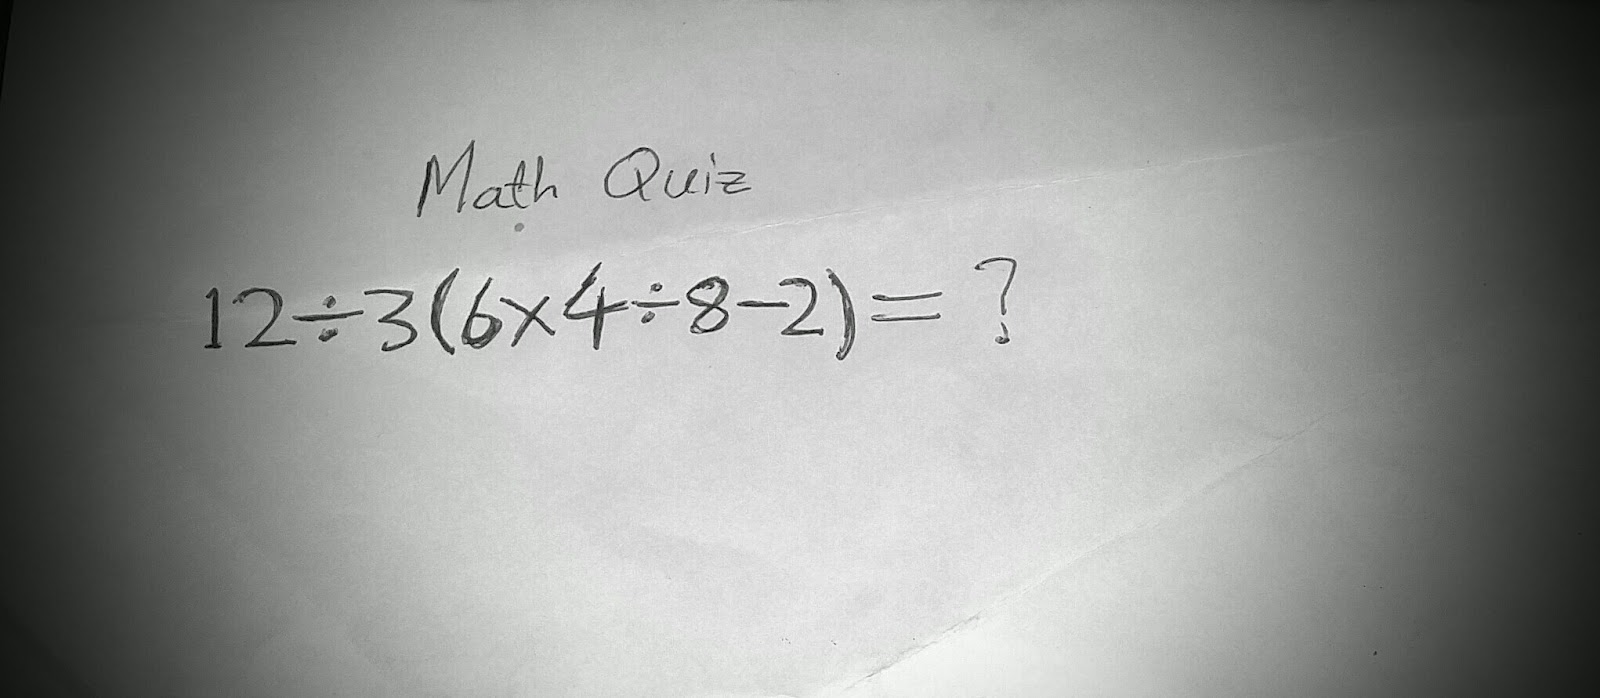 Math Quiz
12÷3(6×4÷8−2)=?